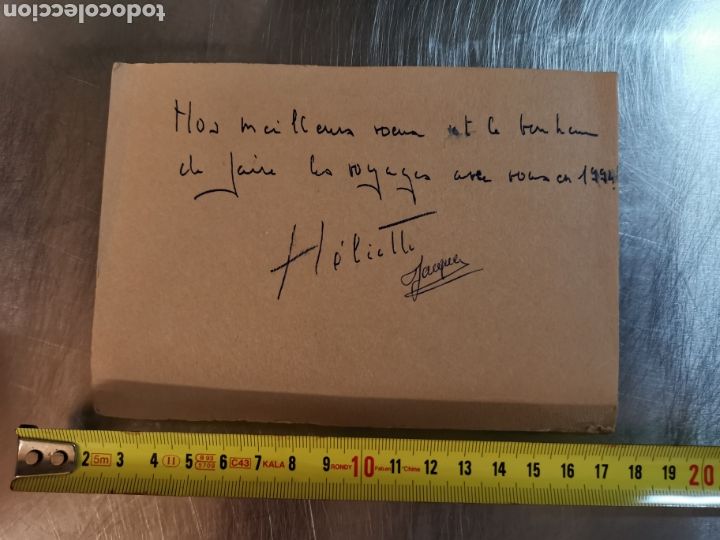 todocoleccion
Nos meilleurs voeux et le bonheur
de faire les voyages avec vous en 1994
Héliette
Jacques
2 5m 3 4 II 5 6 C43 7 KALA 8 9 RONDY 10 11 China 12 13 14 15 16 17 18 19 20